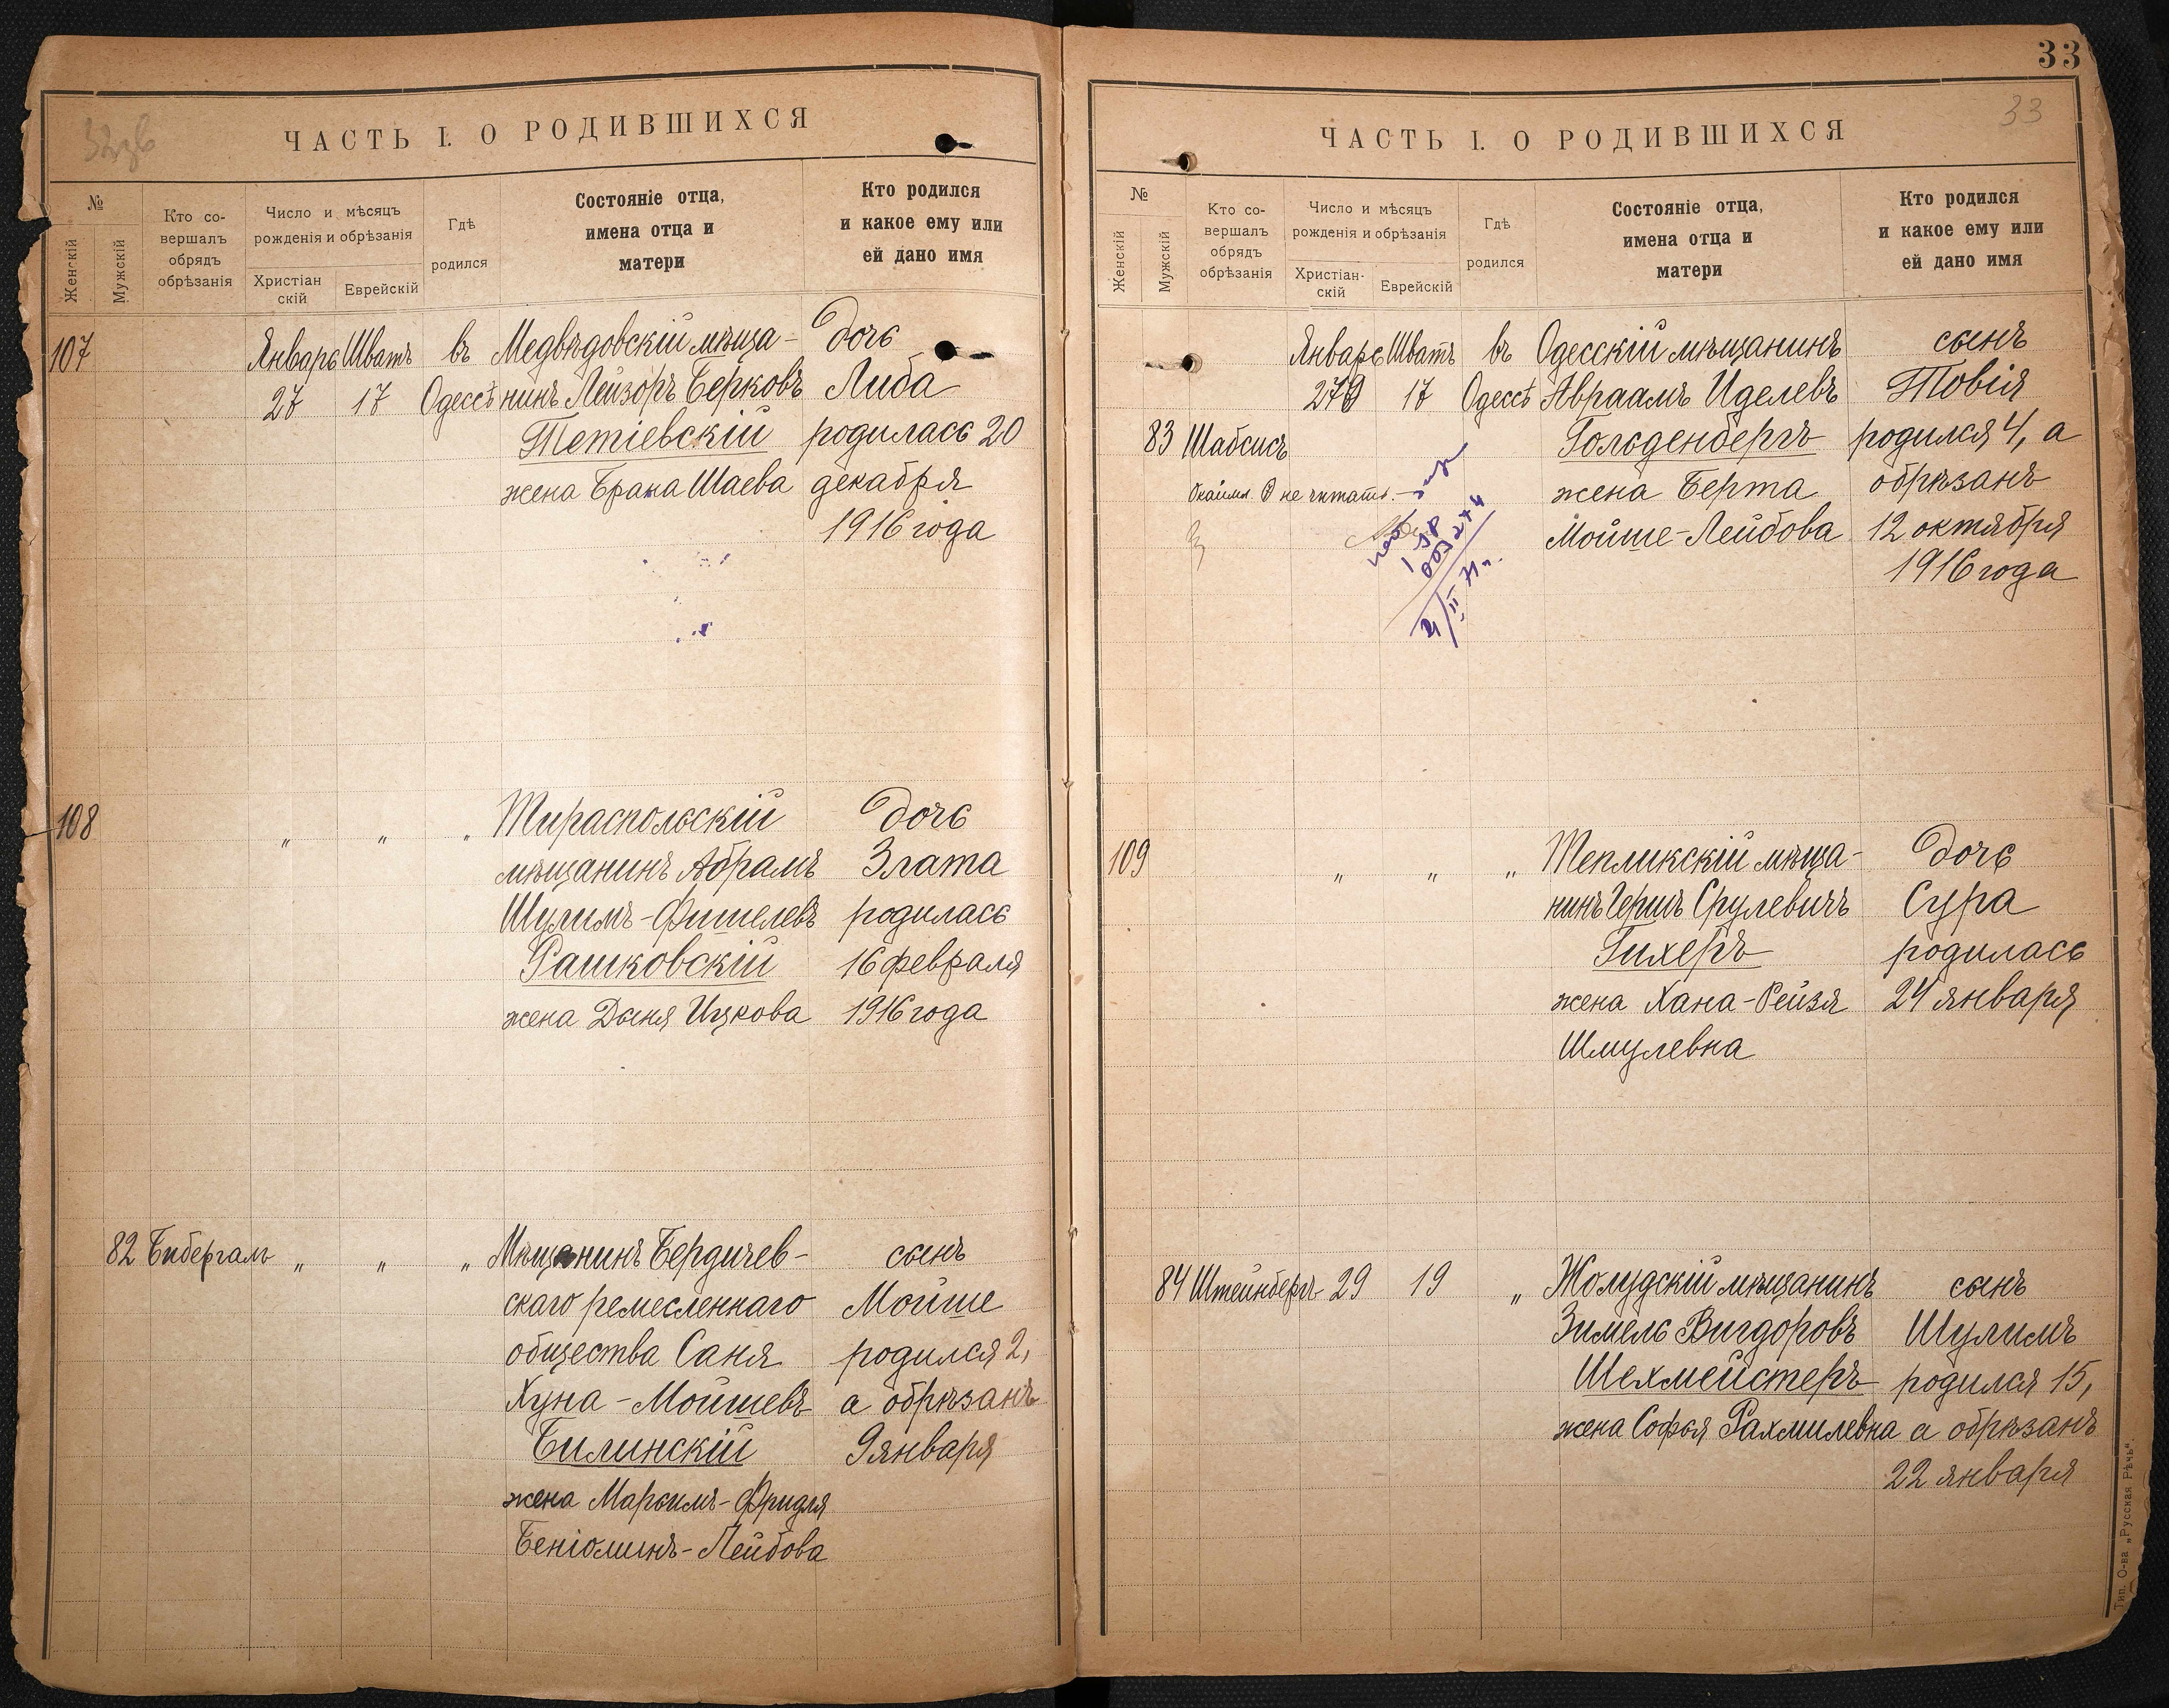 33
32зв
ЧАСТЬ I. О РОДИВШИХСЯ
№
Женскій
Мужскій
Кто со-
вершалъ
обрядъ
обрѣзанія
Число и мѣсяцъ
рожденія и обрѣзанія
Христіан
скій
Еврейскій
Гдѣ
родился
Состояніе отца,
имена отца и
матери
Кто родился
и какое ему или
ей дано имя
107 Январь Шватъ въ Медвѣдовскій мѣща- Дочь
27 17 Одессѣ нинъ Лейзоръ Берковъ Либа
Тетіевскій родилась 20
жена Брана Шаева декабря
1916 года
108 " " " Тираспольскій Дочь
мѣщанинъ Абрамъ Злата
Шулимъ-Фишелевъ родилась
Рашковскій 16 февраля
жена Дыня Ицкова 1916 года
82 Бибергалъ " " " Мѣщанинъ Бердичев- сынъ
скаго ремесленнаго Мойше
общества Саня родился 2,
Хуна-Мойшевъ а обрѣзанъ
Билинскій 9 января
жена Марьимъ-Фридля
Беніоминъ-Лейбова
33
ЧАСТЬ I. О РОДИВШИХСЯ
№
Женскій
Мужскій
Кто со-
вершалъ
обрядъ
обрѣзанія
Число и мѣсяцъ
рожденія и обрѣзанія
Христіан-
скій
Еврейскій
Гдѣ
родился
Состояніе отца,
имена отца и
матери
Кто родился
и какое ему или
ей дано имя
Январь Шватъ въ Одесскій мѣщанинъ сынъ
279 17 Одессѣ Авраамъ Иделевъ Товія
83 Шабсисъ Гольденбергъ родился 4, а
не читать. жена Берта обрѣзанъ
Мойше-Лейбова 12 октября
1916 года
109 " " " Тепликскій мѣща- Дочь
нинъ Гершъ Срулевичъ Сура
Гихеръ родилась
жена Хана-Рейзя 24 января
Шмулевна
84 Штейнбергъ 29 19 " Жолудскій мѣщанинъ сынъ
Зимель Вигдоровъ Шулимъ
Шехмейстеръ родился 15,
жена Софья Рахмилевна а обрѣзанъ
22 января
Тип. О-ва „Русская Рѣчь".